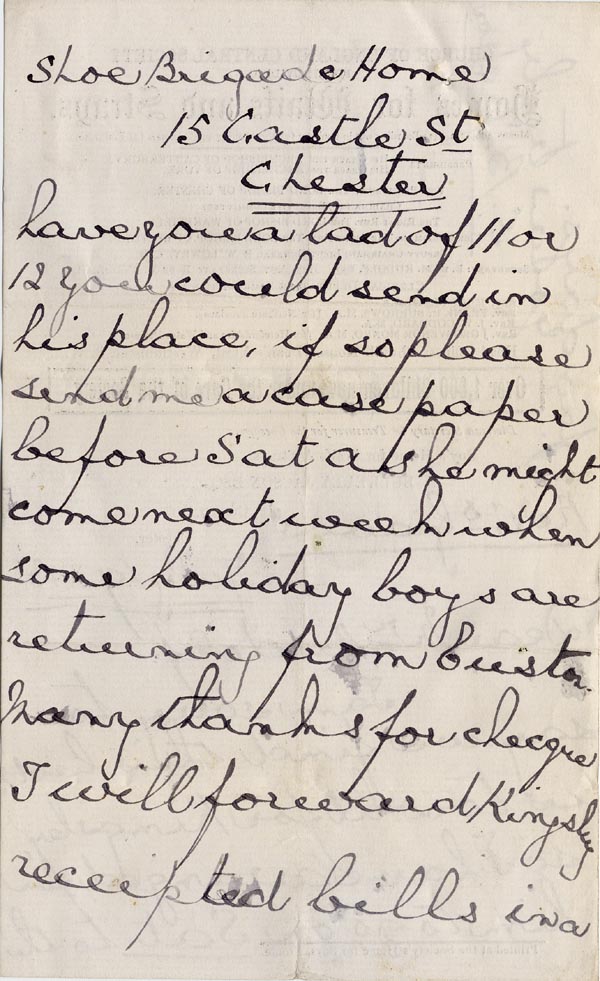 Shoe Brigade Home
15 Castle St
Chester
have you a lad of 11 or
12 you could send in
his place, if so please
send me a case paper
before Sat as he might
come next week when
some holiday boys are
returning from Euston.
Many thanks for cheque
I will forward Kingsley
receipted bills in a